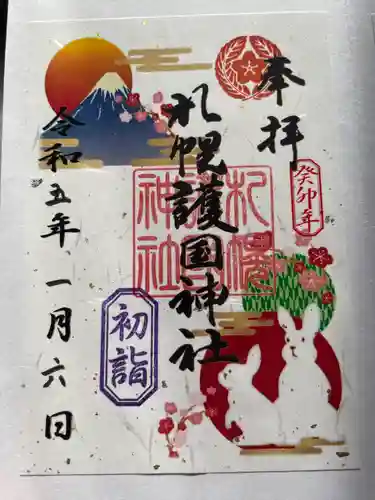 奉拝
癸卯年
札幌護国神社
札幌護国神社
初詣
令和五年一月六日